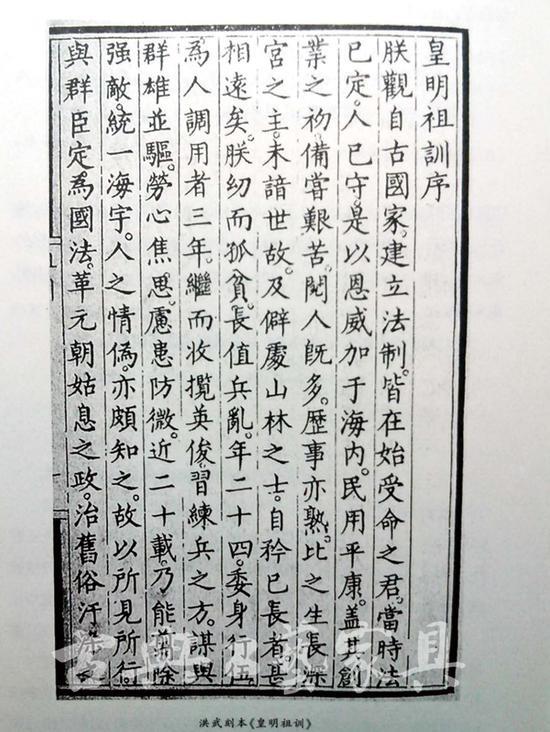 皇明祖訓序
朕觀自古國家。建立法制。皆在始受命之君。當時法
已定。人已守。是以恩威加于海內。民用平康。蓋其創
業之初。備嘗艱苦。閱人旣多。歷事亦熟。比之生長深
宮之主。未諳世故。及僻處山林之士。自矜已長者。甚
相遠矣。朕幼而孤貧。長值兵亂。年二十四。委身行伍
為人調用者三年。繼而收攬英俊。習練兵之方。謀與
群雄並驅。勞心焦思。慮患防微。近二十載。乃能翦除
强敵。統一海宇。人之情偽。亦頗知之。故以所見所行。
與群臣定為國法。革元朝姑息之政。治舊俗汙
家具
洪武刻本《皇明祖训》